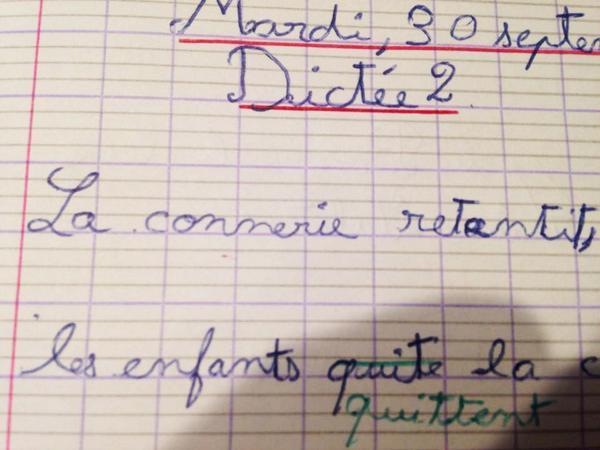 Mardi, 30 septe
Dictée 2
La connerie retantit,
les enfants quite la c
quittent